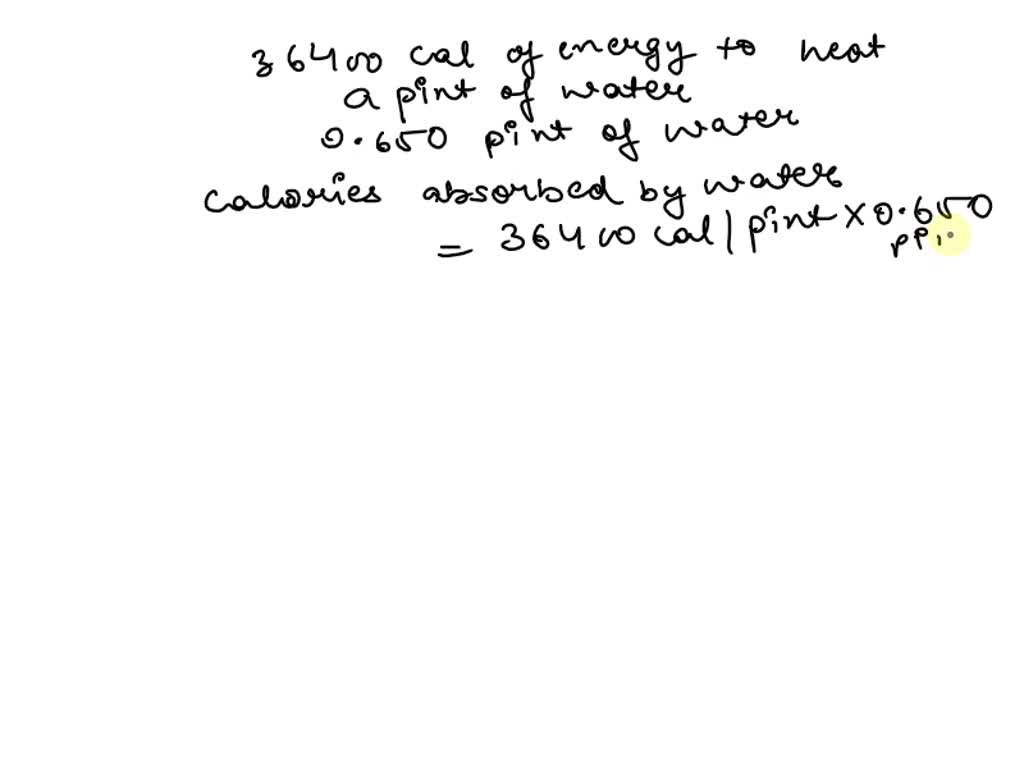 36400 cal of energy to heat
a pint of water
0.650 pint of water
calories absorbed by water
= 36400 cal | pint × 0.650
ppi